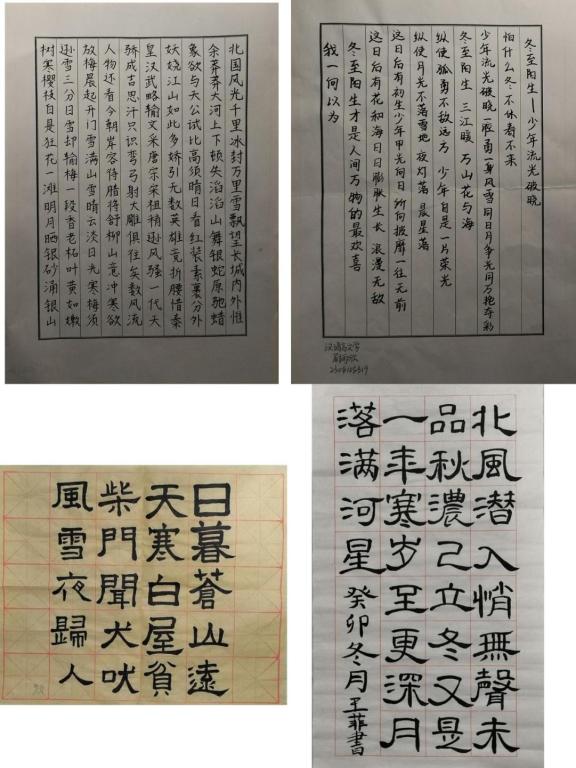 北国风光千里冰封万里雪飘望长城内外惟
余莽莽大河上下顿失滔滔山舞银蛇原驰蜡
象欲与天公试比高须晴日看红装素裹分外
妖娆江山如此多娇引无数英雄竞折腰惜秦
皇汉武略输文采唐宗宋祖稍逊风骚一代天
骄成吉思汗只识弯弓射大雕俱往矣数风流
人物还看今朝岸容待腊将舒柳山意冲寒欲
放梅晨起开门雪满山雪晴云淡日光寒梅须
逊雪三分白雪却输梅一段香老柘叶黄如嫩
树寒樱枝白是狂花一滩明月晒银砂涌银山
冬至阳生一少年流光破晓
怕什么冬不休春不来
少年流光破晓一腔勇一身风雪同日月争光同万艳夺彩
冬至阳生 三江暖 万山花与海
纵使孤勇不敌远方 少年自是一片荣光
纵使月光不落雪地 夜灯落 晨星落
这日后有初生少年甲光向日 所向披靡一往无前
这日后有花和海日日膨胀生长 浪漫无敌
冬至阳生才是人间万物的最欢喜
我一向以为
汉语言文学
日暮蒼山遠
天寒白屋貧
柴門聞犬吠
風雪夜歸人
北風潜入悄無聲未
品秋濃已立冬又是
一年寒岁至更深月
落满河星癸卯冬月王菲書